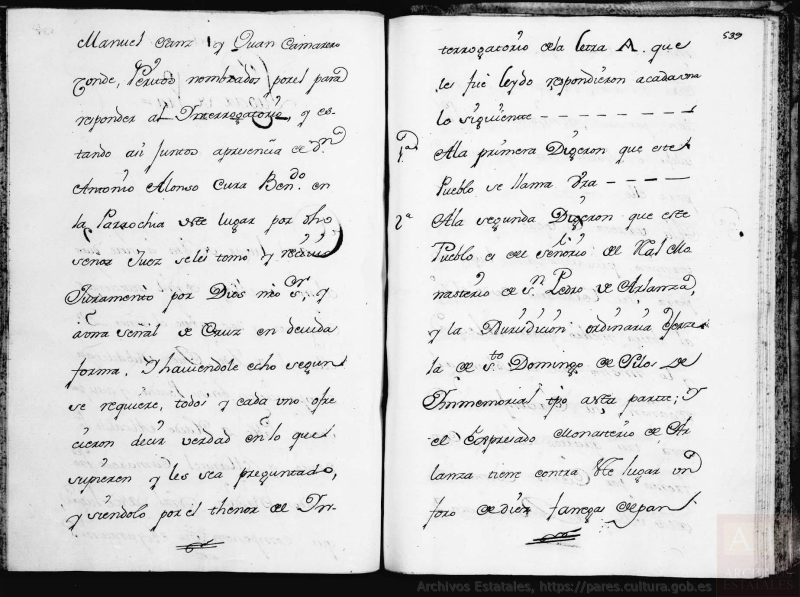 Manuel Sanz y Juan Camarero
Conde, Peritos nombrados por el para
responder al Interrogatorio, y es-
tando asi juntos apresencia de Dn
Antonio Alonso Cura Bendo. en
la Parrochia de este lugar por dho
señor Juez se les tomó y recivio
Juramento por Dios nro Sr. y
a una señal de Cruz en devida
forma, I haviendole echo segun
se requiere, todos y cada uno ofre
cieron decir verdad en lo que
supieren y les sea preguntado,
y siendolo por el thenor de In-
539
terrogatorio de la letra A. que
les fue leydo respondieron acada una
lo siguiente
1ª Ala primera Digeron que este
Pueblo se llama
2ª Ala segunda Digeron que este
Pueblo es del señorio del Rl Mo
nasterio de Sn Pedro de Arlanza,
y la Jurisdicion ordinaria ejerze
la de Sto Domingo de Silos de
Immemorial tpo a esta parte; I
el Expresado Monasterio de Ar
lanza tiene contra este lugar un
foro de diez fanegas de pan
Archivos Estatales, https://pares.cultura.gob.es